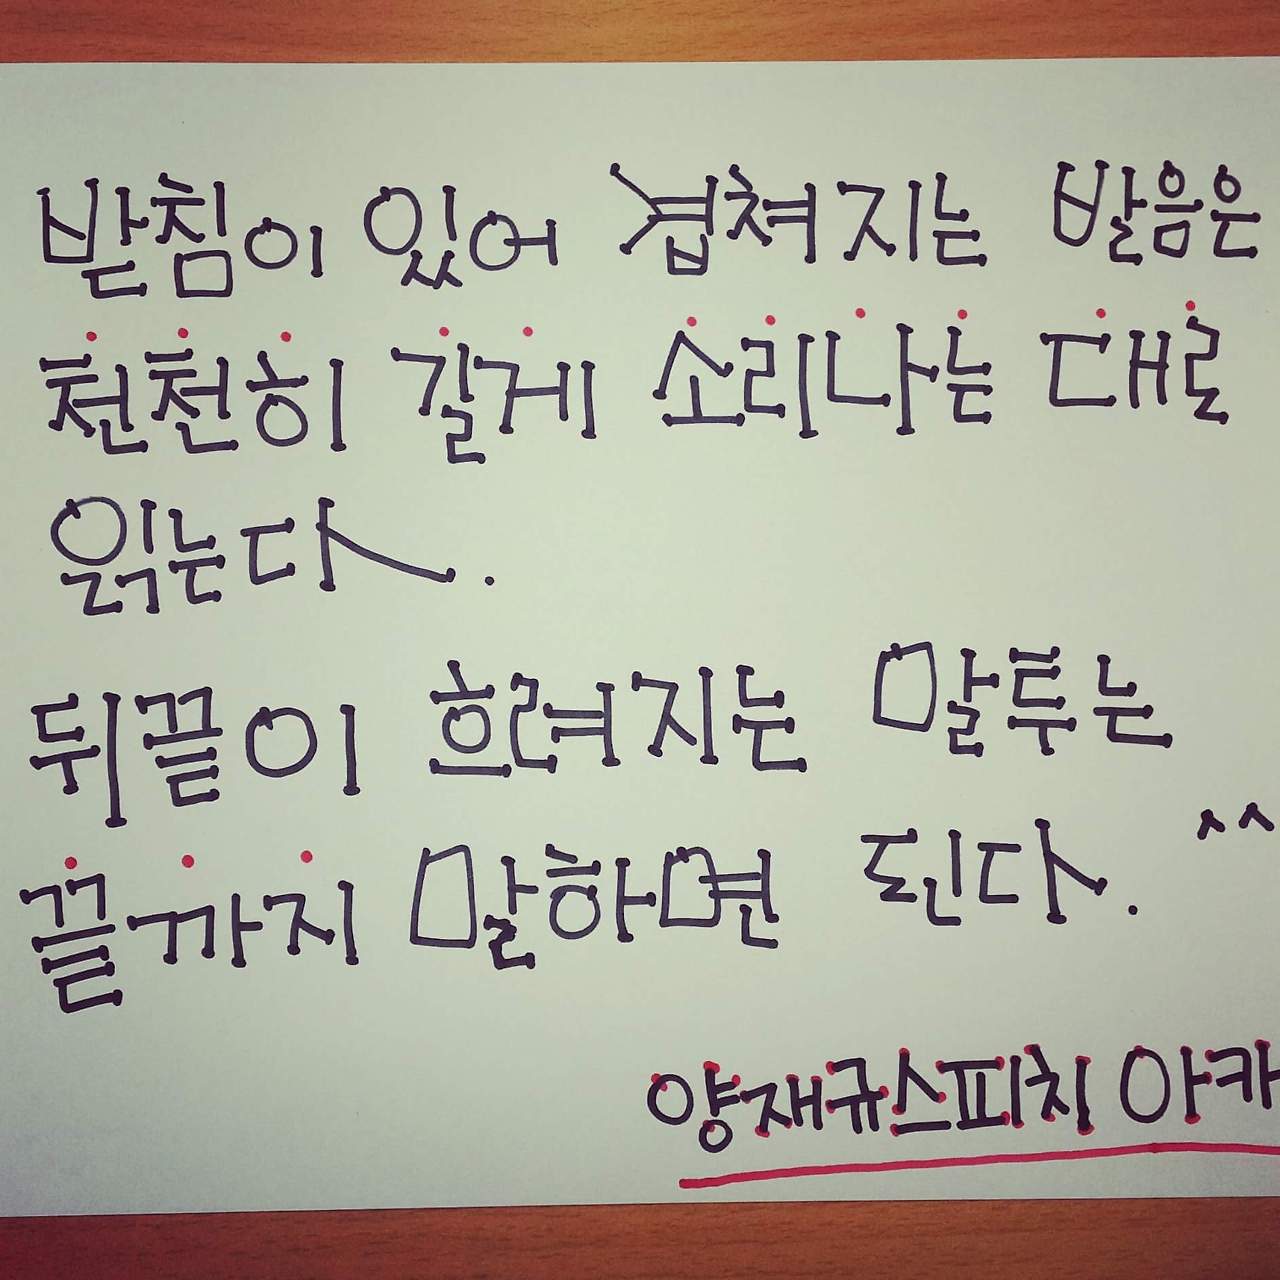 받침이 있어 겹쳐지는 발음은
천천히 길게 소리나는 대로
읽는다.
뒤끝이 흐려지는 말투는
끝까지 말하면 된다. ^^
양재규스피치 아카